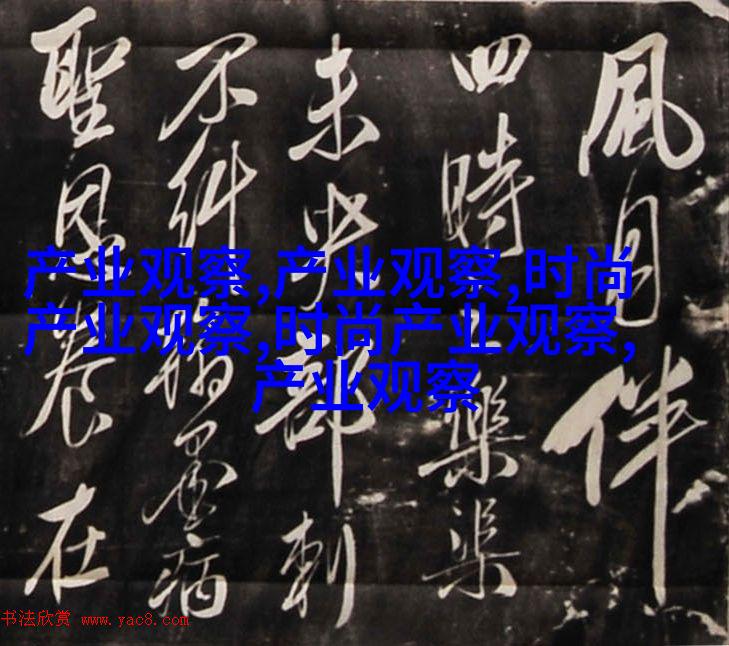 风月伴
四時樂渠
未央部刺
不糾墨病
聖恩養在
产业观察,产业观察,时尚
产业观察,时尚产业观察,
产业观察
书法欣赏 www.yac8.com